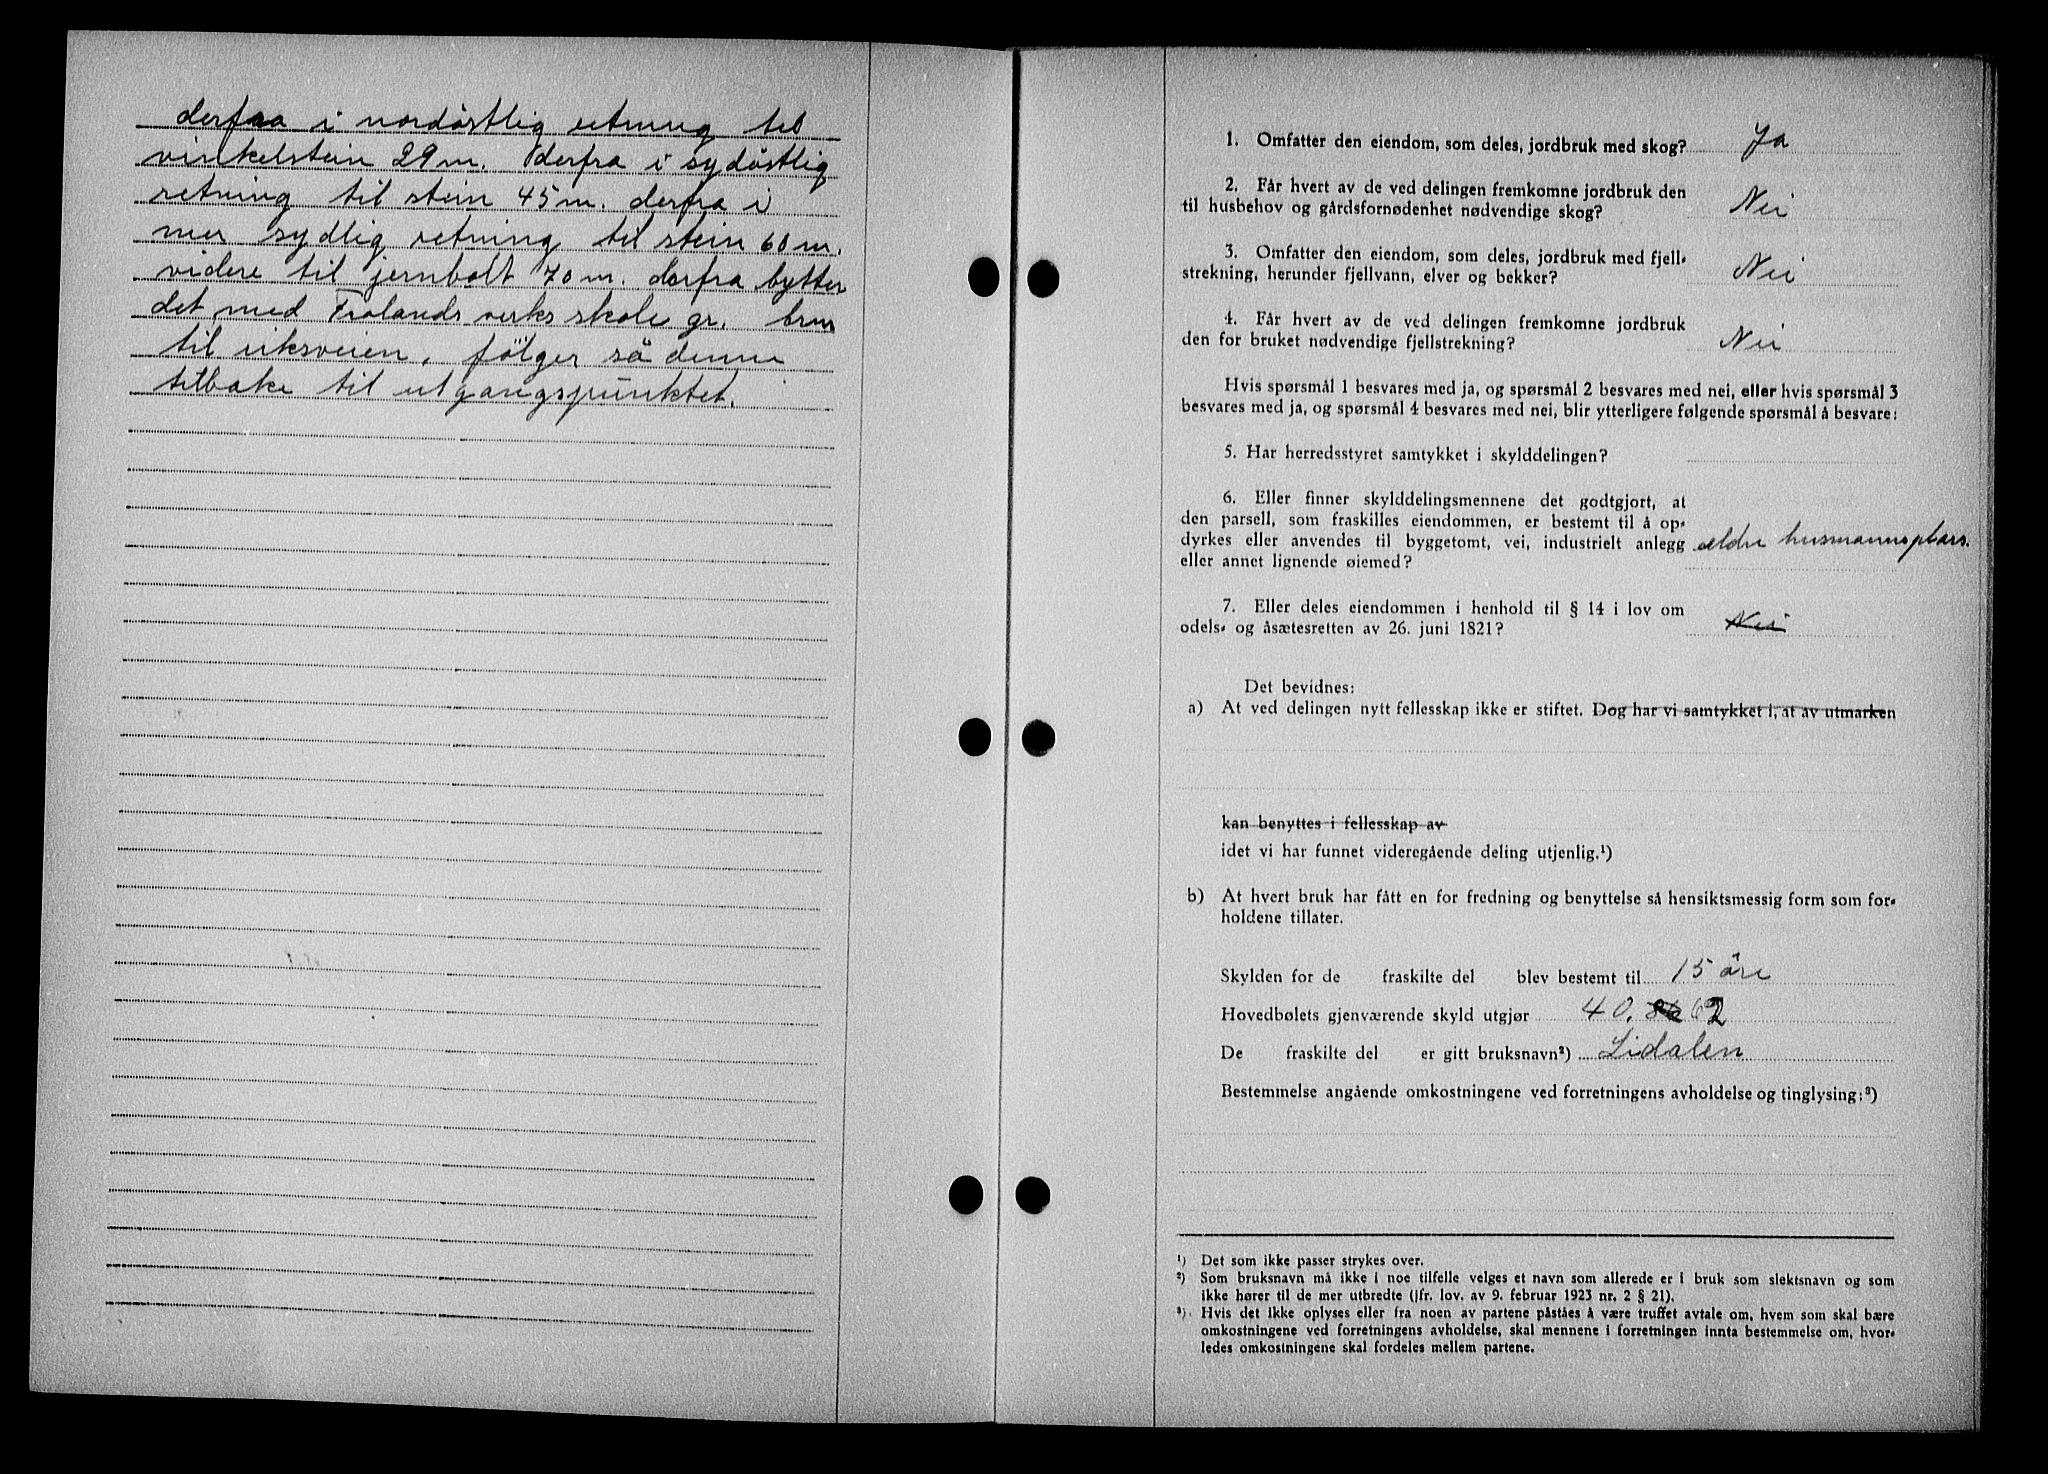 derfraa i nordöstlig retning til
vinkelstein 29 m. derfra i sydöstlig
retning til stein 45 m. derfra i
mer sydlig retning til stein 60 m.
videre til jernbolt 70 m. derfra bytter
det med Frolands verks skole gr. brnr
til riksveien, fölger så denne
tilbake til utgangspunktet.
1. Omfatter den eiendom, som deles, jordbruk med skog? Ja
2. Får hvert av de ved delingen fremkomne jordbruk den
til husbehov og gårdsfornødenhet nødvendige skog? Nei
3. Omfatter den eiendom, som deles, jordbruk med fjell-
strekning, herunder fjellvann, elver og bekker? Nei
4. Får hvert av de ved delingen fremkomne jordbruk
den for bruket nødvendige fjellstrekning? Nei
Hvis spørsmål 1 besvares med ja, og spørsmål 2 besvares med nei, eller hvis spørsmål 3
besvares med ja, og spørsmål 4 besvares med nei, blir ytterligere følgende spørsmål å besvare:
5. Har herredsstyret samtykket i skylddelingen?
6. Eller finner skylddelingsmennene det godtgjort, at
den parsell, som fraskilles eiendommen, er bestemt til å op-
dyrkes eller anvendes til byggetomt, vei, industrielt anlegg
eller annet lignende øiemed? eldre husmannsplass.
7. Eller deles eiendommen i henhold til § 14 i lov om
odels- og åsætesretten av 26. juni 1821? Nei
Det bevidnes:
a) At ved delingen nytt fellesskap ikke er stiftet. Dog har vi samtykket i, at av utmarken
kan benyttes i fellesskap av
idet vi har funnet videregående deling utjenlig.¹)
b) At hvert bruk har fått en for fredning og benyttelse så hensiktsmessig form som for-
holdene tillater.
Skylden for de fraskilte del blev bestemt til 15 öre
Hovedbølets gjenværende skyld utgjør 40, 62
De fraskilte del er gitt bruksnavn²) Lidalen
Bestemmelse angående omkostningene ved forretningens avholdelse og tinglysing:³)
¹) Det som ikke passer strykes over.
²) Som bruksnavn må ikke i noe tilfelle velges et navn som allerede er i bruk som slektsnavn og som
ikke hører til de mer utbredte (jfr. lov. av 9. februar 1923 nr. 2 § 21).
³) Hvis det ikke oplyses eller fra noen av partene påståes å være truffet avtale om, hvem som skal bære
omkostningene ved forretningens avholdelse, skal mennene i forretningen innta bestemmelse om, hvor-
ledes omkostningene skal fordeles mellem partene.